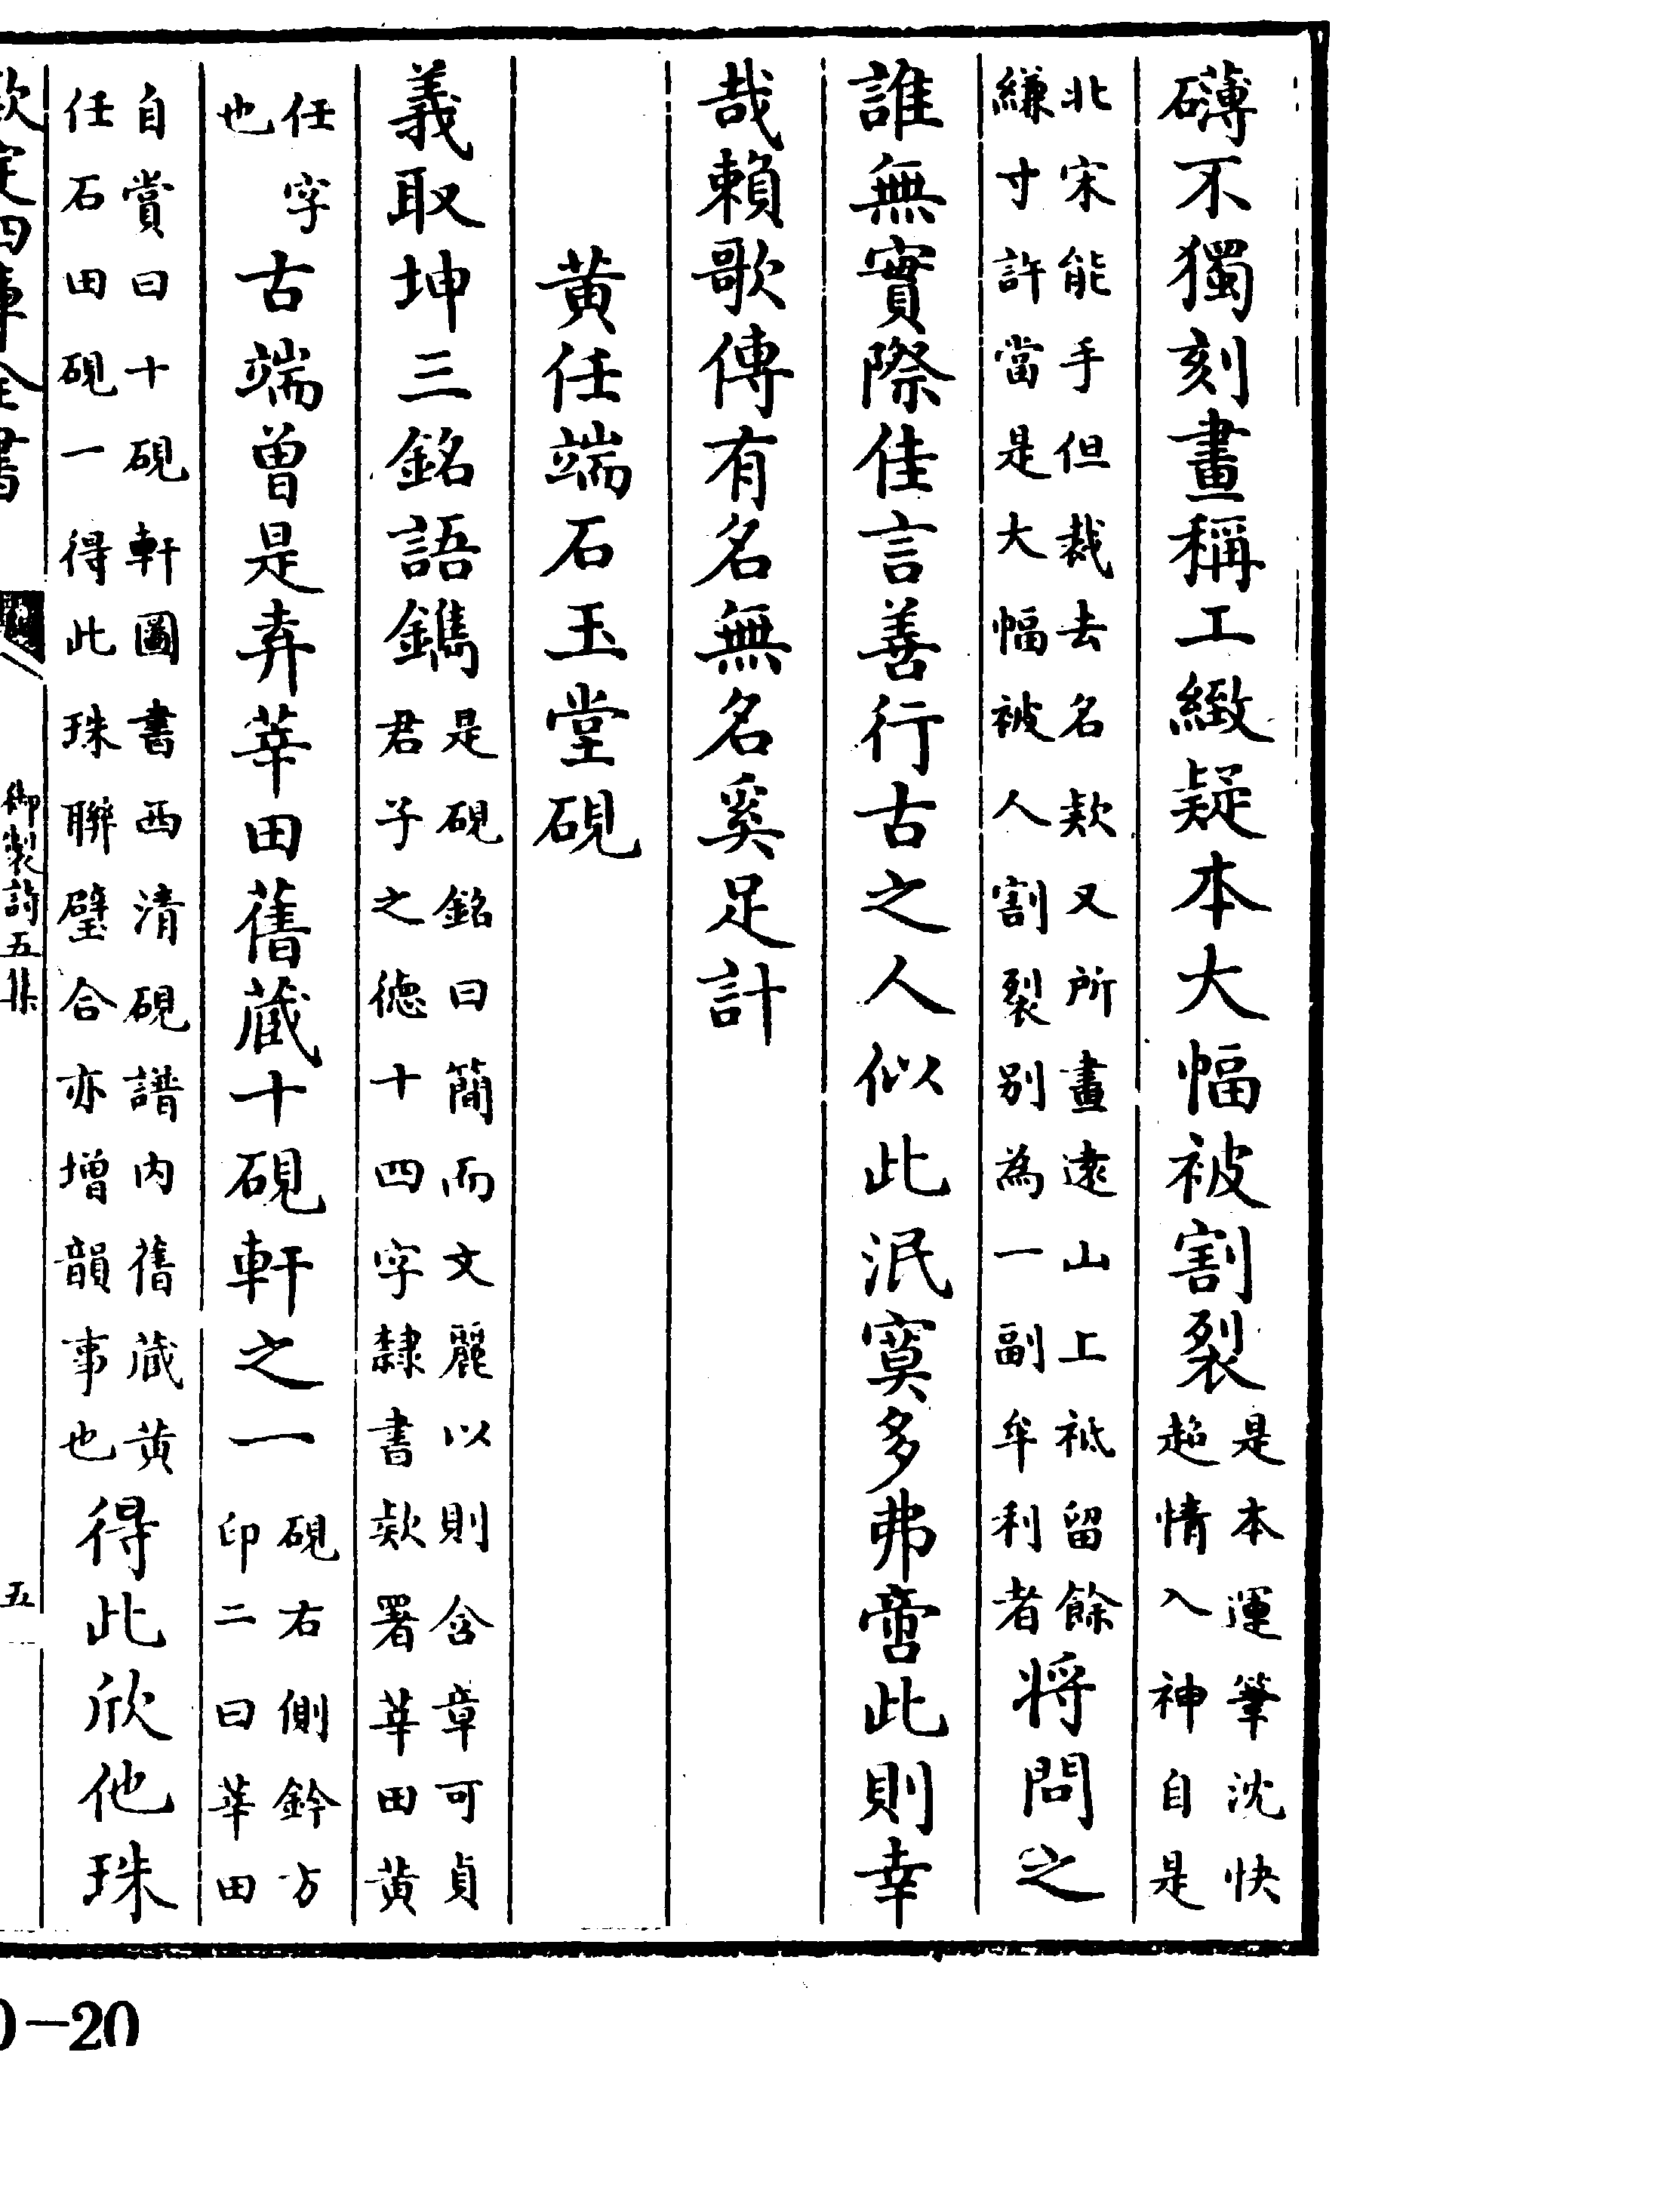 礴不獨刻畫稱工緻疑本大幅被割裂是本運筆沈快超情入神自是
北宋能手但裁去名欵又所畫遠山上祗留餘縑寸許當是大幅被人割裂别為一副牟利者將問之
誰無實際佳言善行古之人似此泯寞多弗啻此則幸
哉賴歌傳有名無名奚足計
黄任端石玉堂硯
義取坤三銘語鐫是硯銘曰簡而文麗以則含章可貞君子之德十四字隸書欵署莘田黄
任字也古端曾是弆莘田舊藏十硯軒之一硯右側鈐方印二曰莘田
自賞曰十硯軒圖書西清硯譜内舊藏黄任石田硯一得此珠聯璧合亦增韻事也得此欣他珠
欽定四庫全書
御製詩五集
五
0-20